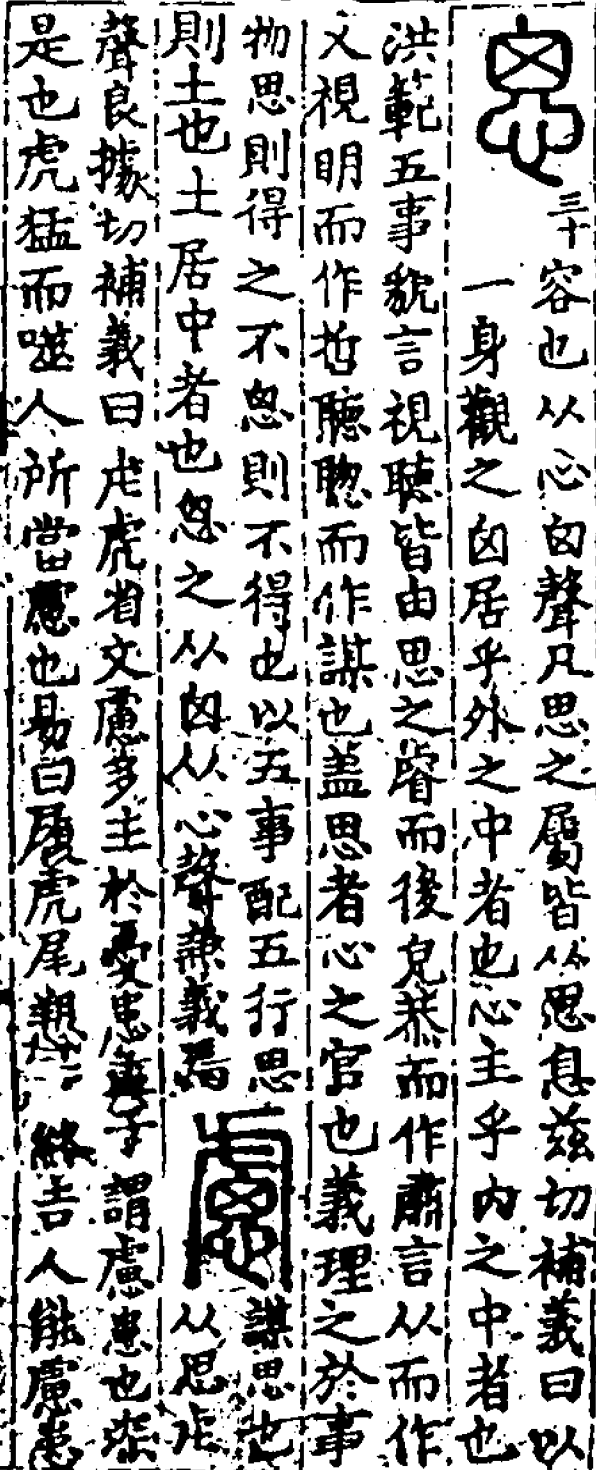 恖 三十 容也从心囟聲凡思之屬皆从思息兹切補義曰以
一身觀之囟居乎外之中者也心主乎内之中者也
洪範五事貌言視聽皆由思之睿而後皃恭而作肅言从而作
乂視明而作哲聽聰而作謀也蓋思者心之官也義理之於事
物思則得之不恖則不得也以五事配五行思
則土也土居中者也恖之从囟从心聲兼義焉
慮 謀思也
从思虍
聲良據切補義曰虍虎省文慮多主於憂患孟子謂慮患也深
是也虎猛而噬人所當慮也易曰履虎尾愬愬終吉人能慮患